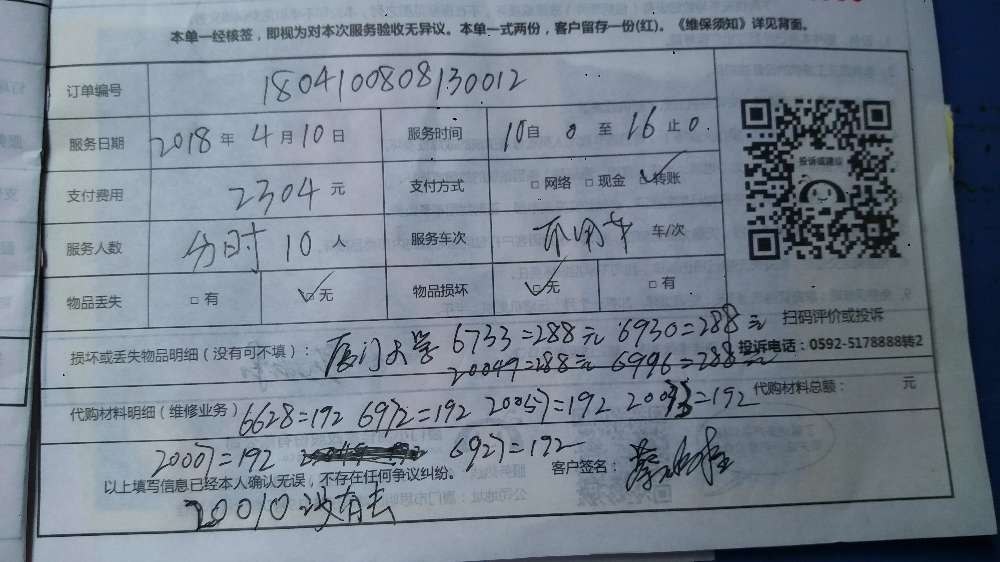 本单一经核签，即视为对本次服务验收无异议。本单一式两份，客户留存一份(红)。《维保须知》详见背面。
订单编号 1804100808130012
服务日期 2018年4月10日 服务时间 10自0至16止0
支付费用 2304元 支付方式 □网络 □现金 ☑转账
投诉或建议
服务人数 分时10人 服务车次 不用车 车/次
物品丢失 □有 ☑无 物品损坏 ☑无 □有
扫码评价或投诉
损坏或丢失物品明细（没有可不填）： 厦门大学 6733=288元 6930=288元
投诉电话：0592-5178888转2
20049=288元 6996=288元
代购材料明细（维修业务） 6628=192 6972=192 20057=192 =192 代购材料总额： 元
20007=192 6927=192
以上填写信息已经本人确认无误，不存在任何争议纠纷。 客户签名：
20010没有去